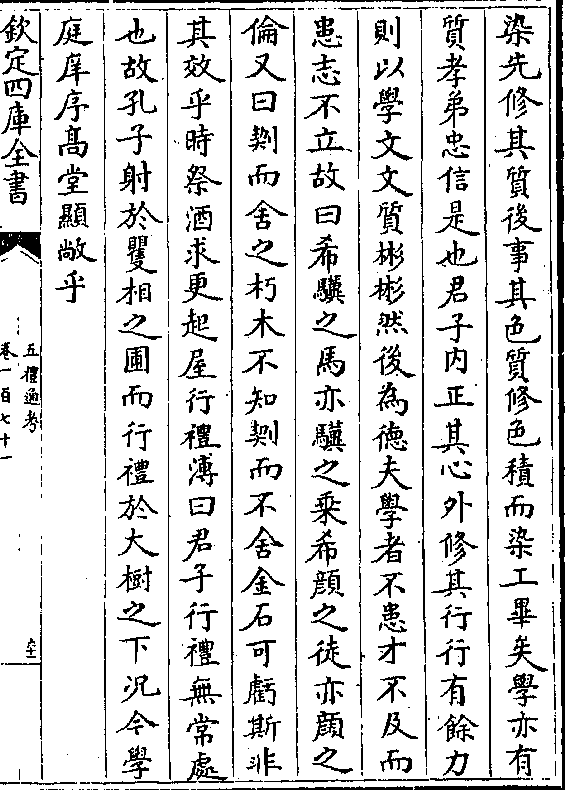 染先修其質後事其色質修色積而染工畢矣學亦有
質孝弟忠信是也君子内正其心外修其行行有餘力
則以學文文質彬彬然後為徳夫學者不患才不及而
患志不立故曰希驥之馬亦驥之乗希顔之徒亦顔之
倫又曰剟而舎之朽木不知剟而不舎金石可虧斯非
其效乎時祭酒求更起屋行禮溥曰君子行禮無常處
也故孔子射於矍相之圃而行禮於大樹之下况今學
庭庠序髙堂顯敞乎
欽定四庫全書
五禮通考
卷一百七十一
六十二